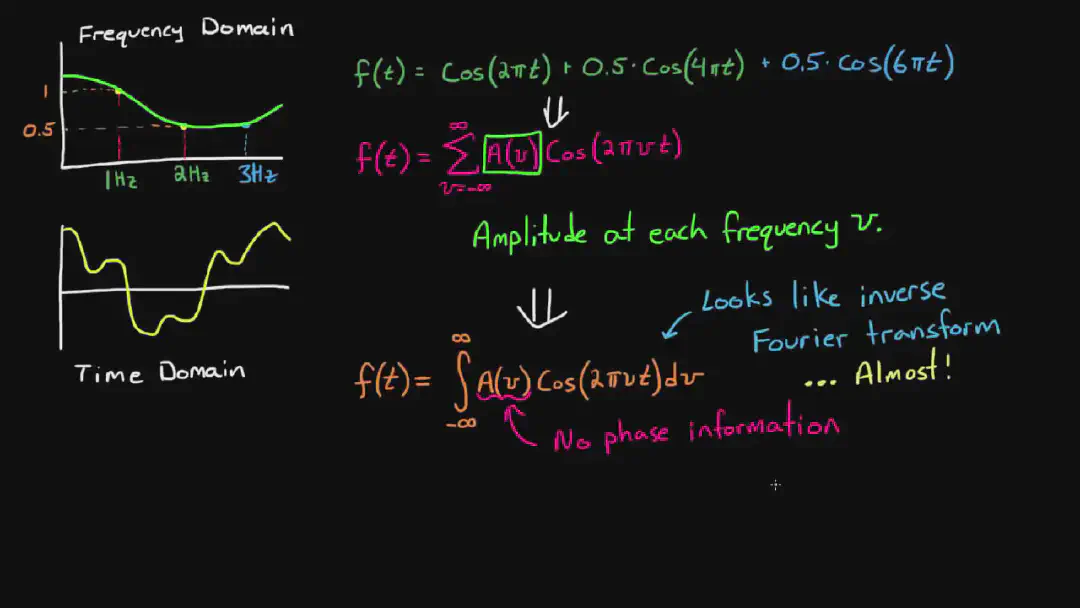 Frequency Domain
1
0.5
1Hz 2Hz 3Hz
Time Domain
f(t) = Cos(2πt) + 0.5·Cos(4πt) + 0.5·Cos(6πt)
⇓
f(t) = ∑_{v=-∞}^{∞} A(v) Cos(2πvt)
Amplitude at each frequency v.
⇓
Looks like inverse
Fourier transform
... Almost!
f(t) = ∫_{-∞}^{∞} A(v) Cos(2πvt)dv
No phase information